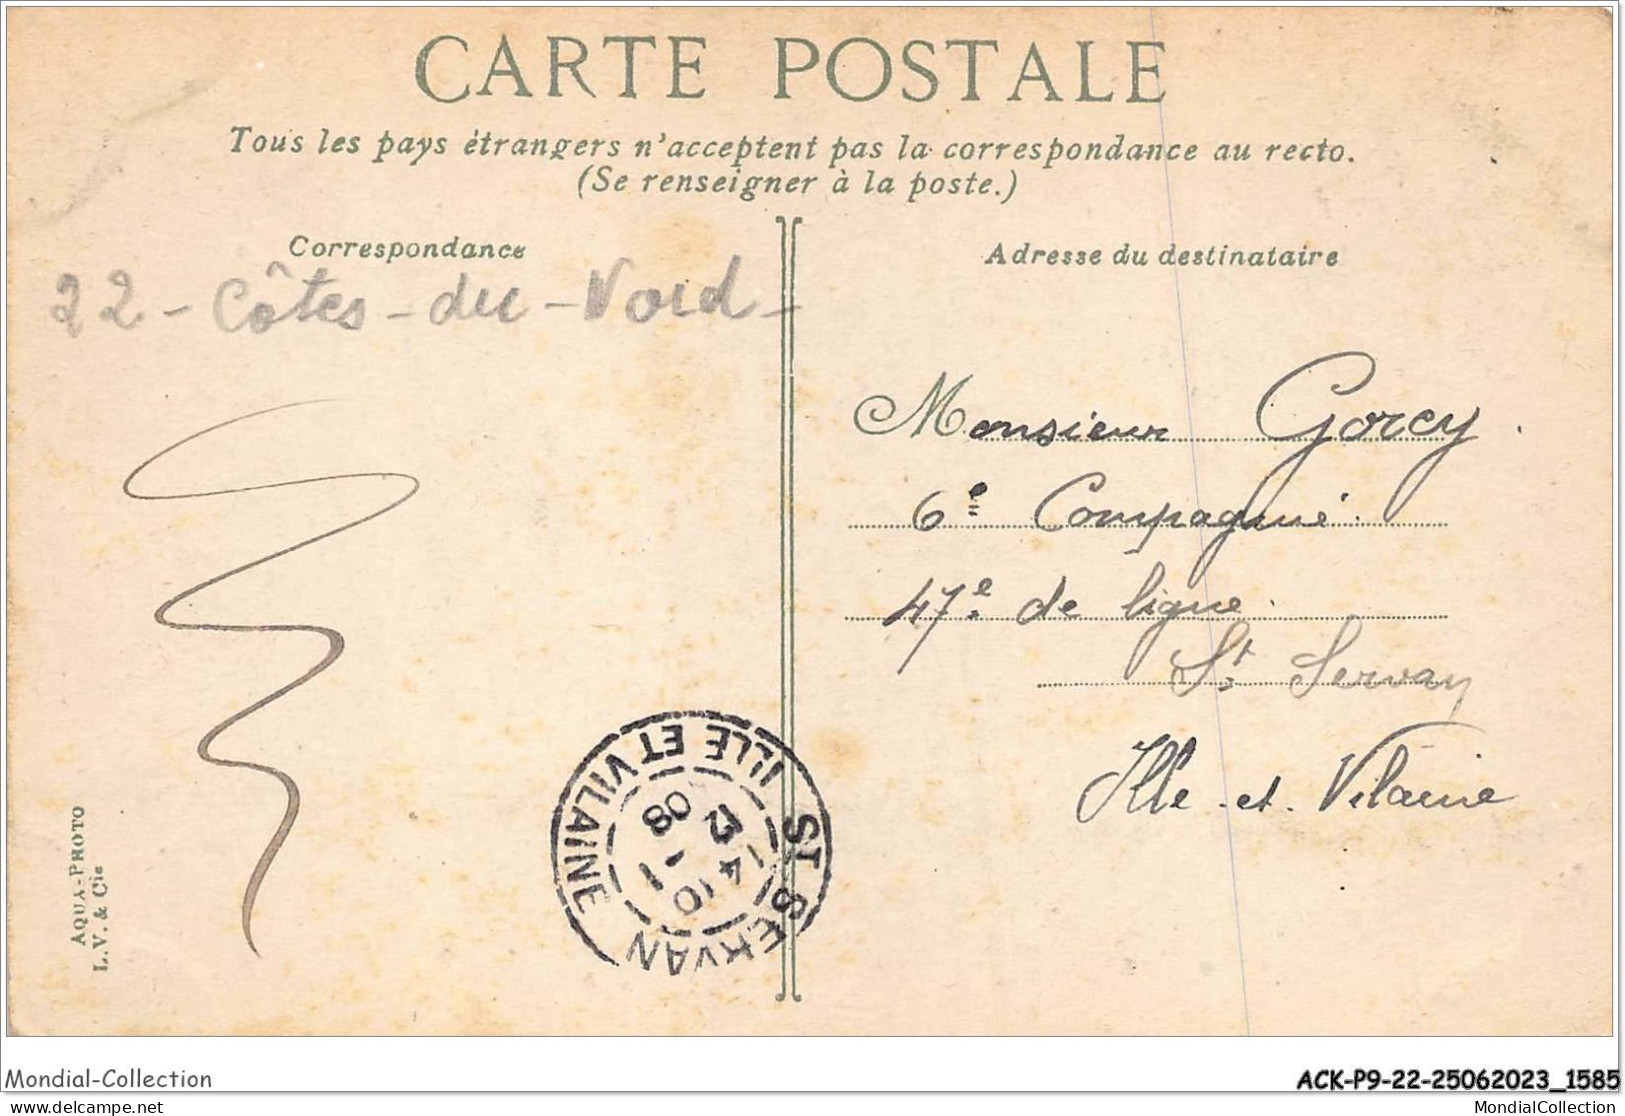 CARTE POSTALE
Tous les pays étrangers n'acceptent pas la correspondance au recto.
(Se renseigner à la poste.)
Correspondance
22 - Côtes - du - Nord -
Adresse du destinataire
Monsieur Gorcy.
6e Compagnie.
47e de ligne.
St Servan
Ille-et-Vilaine
AQUA-PHOTO
L.V. & Cie
ST SERVAN
ILLE ET VILAINE
10
08
Mondial-Collection
ACK-P9-22-25062023_1585
delcampe.net
MondialCollection